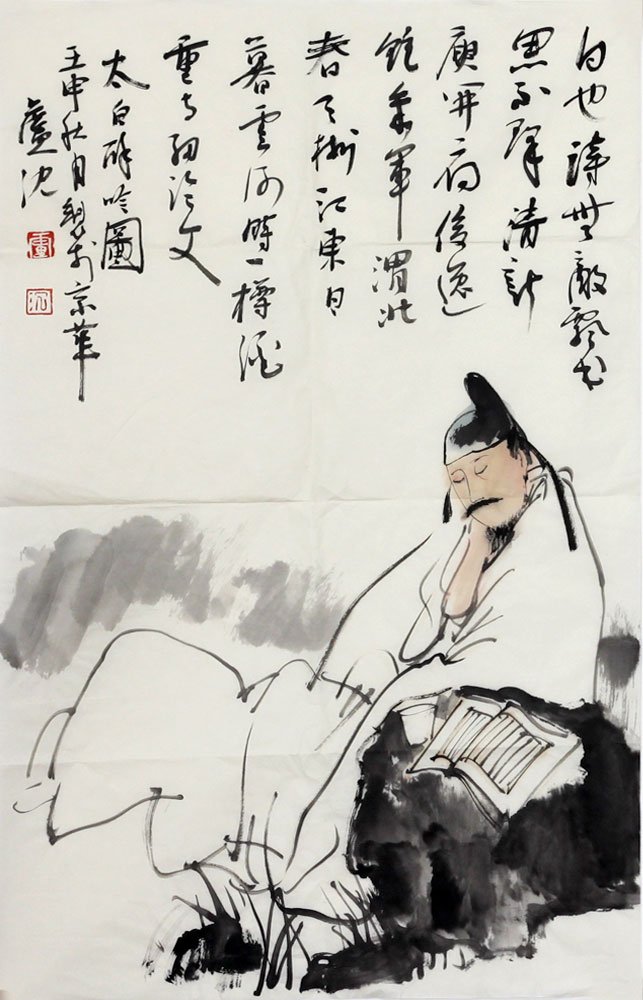 白也詩無敵飘然
思不群清新
庾開府俊逸
鮑参軍渭北
春天樹江東日
暮雲何時一樽酒
重与細论文
太白醉吟圖
壬申秋月製於京華
盧沈
盧
沉